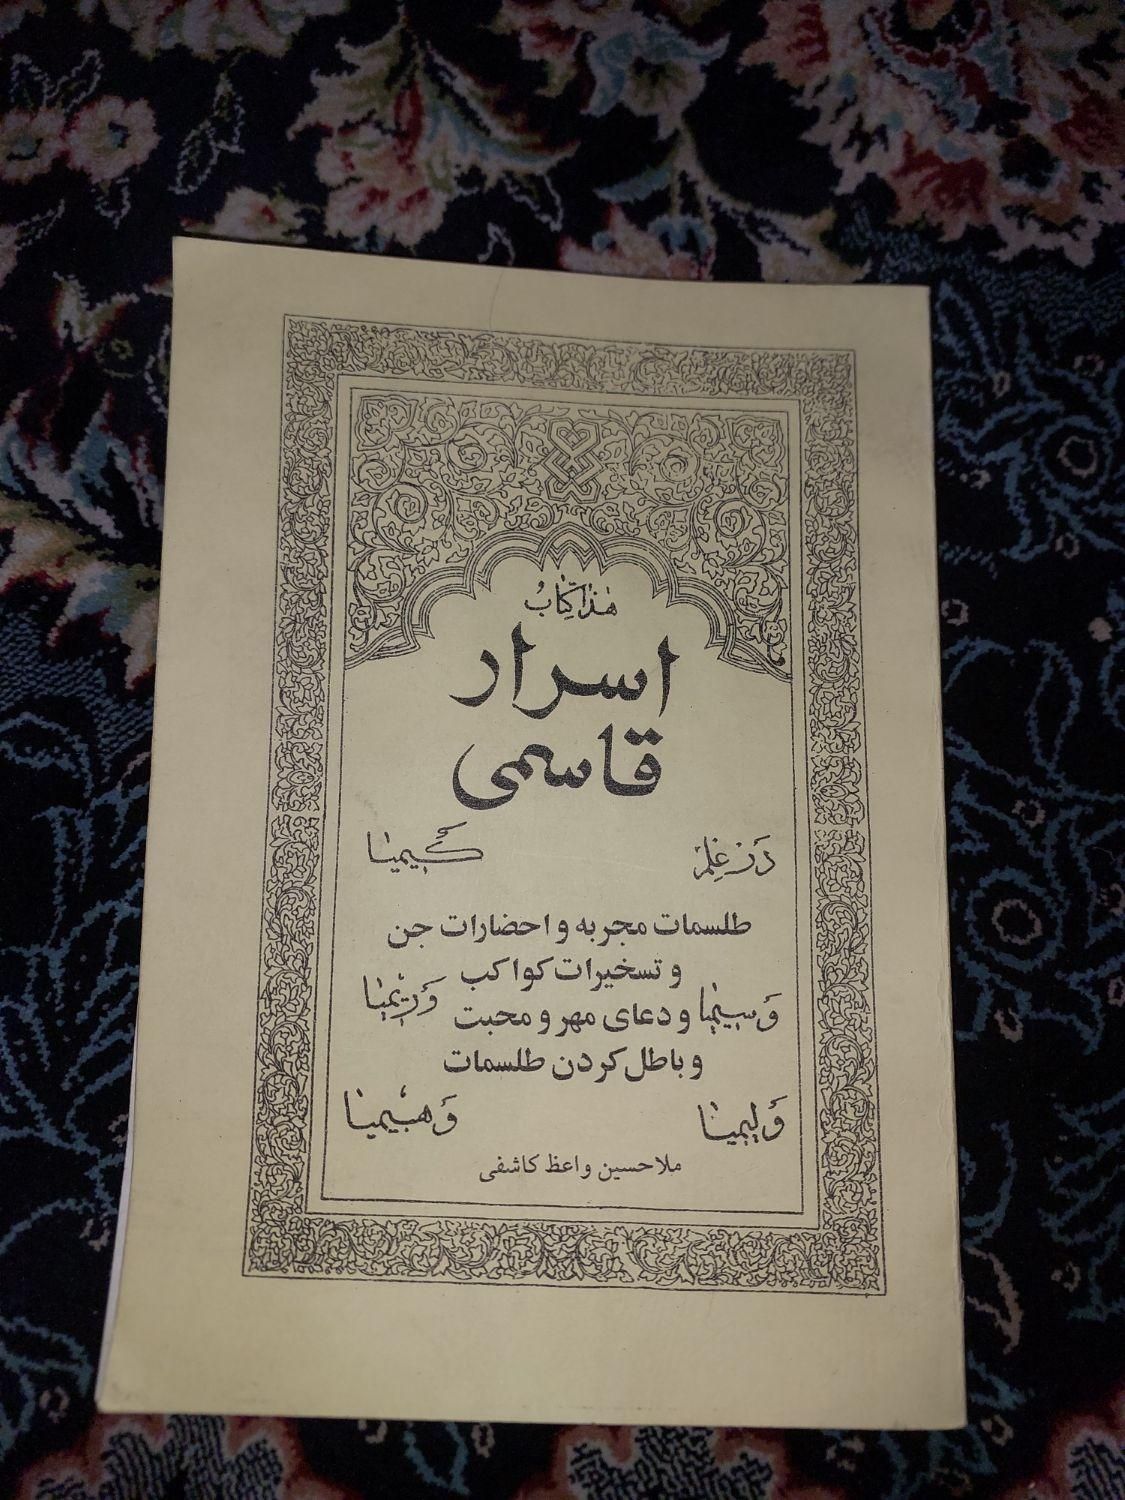 هذا کِتابُ
اسرار
قاسمی
دَر عِلم کیمیا
طلسمات مجربه و احضارات جن
و تسخیرات کواکب
وَ سیمیا و دعای مهر و محبت وَ ریمیا
و باطل کردن طلسمات
وَ لیمیا وَ هیمیا
ملاحسین واعظ کاشفی